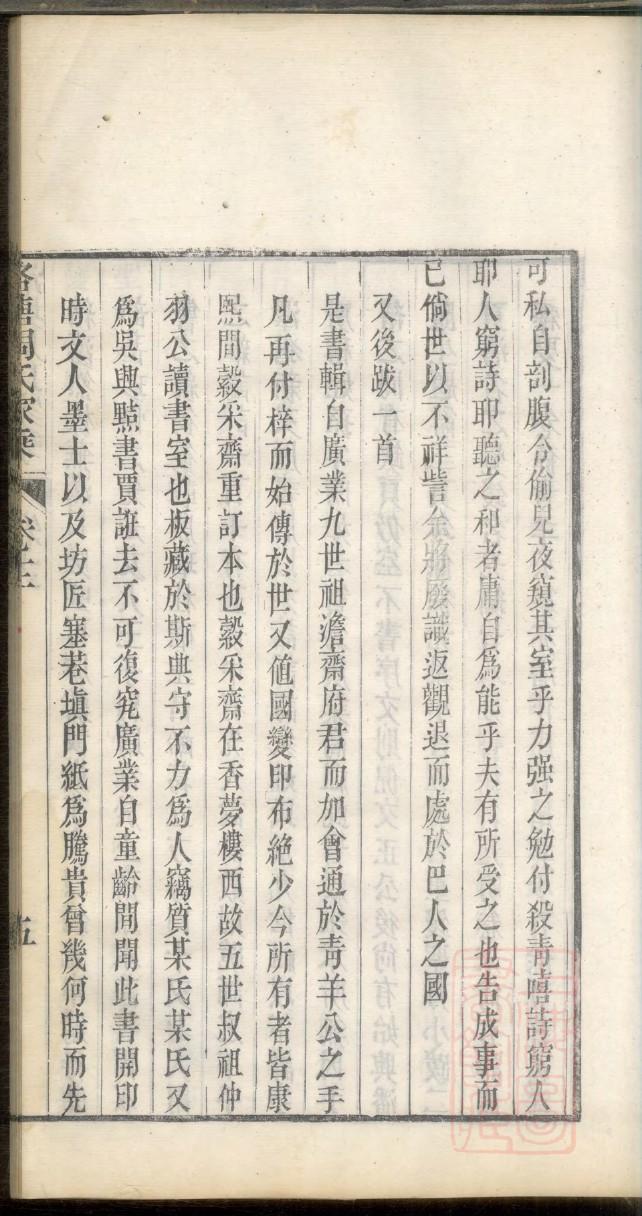 可私自剖腹令偷兒夜窺其室乎力强之勉付殺青嘻詩窮人
耶人窮詩耶聽之和者庸自爲能乎夫有所受之也告成事而
已倘世以不祥訾余將廢議返觀退而處於巴人之國
又後跋一首
是書輯自廣業九世祖澹齋府君而加會通於青羊公之手
凡再付梓而始傳於世又值國變印布絶少今所有者皆康
熙間穀采齋重訂本也穀采齋在香夢樓西故五世叔祖仲
羽公讀書室也板藏於斯典守不力爲人竊質某氏某氏又
爲吳興黠書賈誑去不可復究廣業自童齡聞聞此書開印
時文人墨士以及坊匠塞巷塡門紙爲騰貴曾幾何時而先
洛塘周氏家乘
卷十二
五